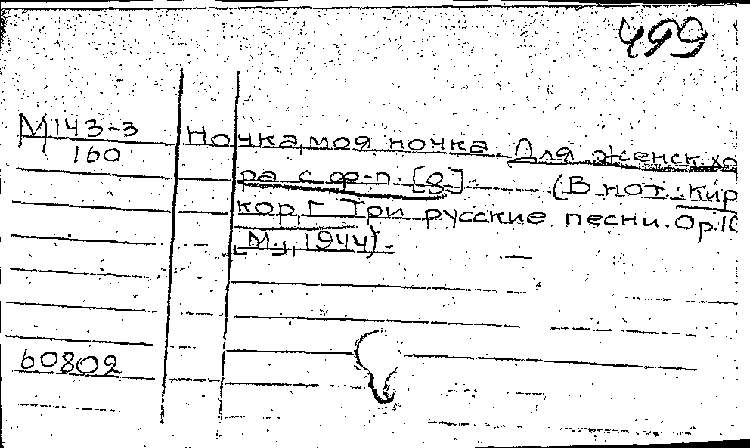 499
М143-3
160
Ночка, моя ночка. Для женск. хо
ра с ф-п. [g]. (В нот.: Кир
кор, Г. Три русские песни. Ор. 10
[М.], 1944).
60802